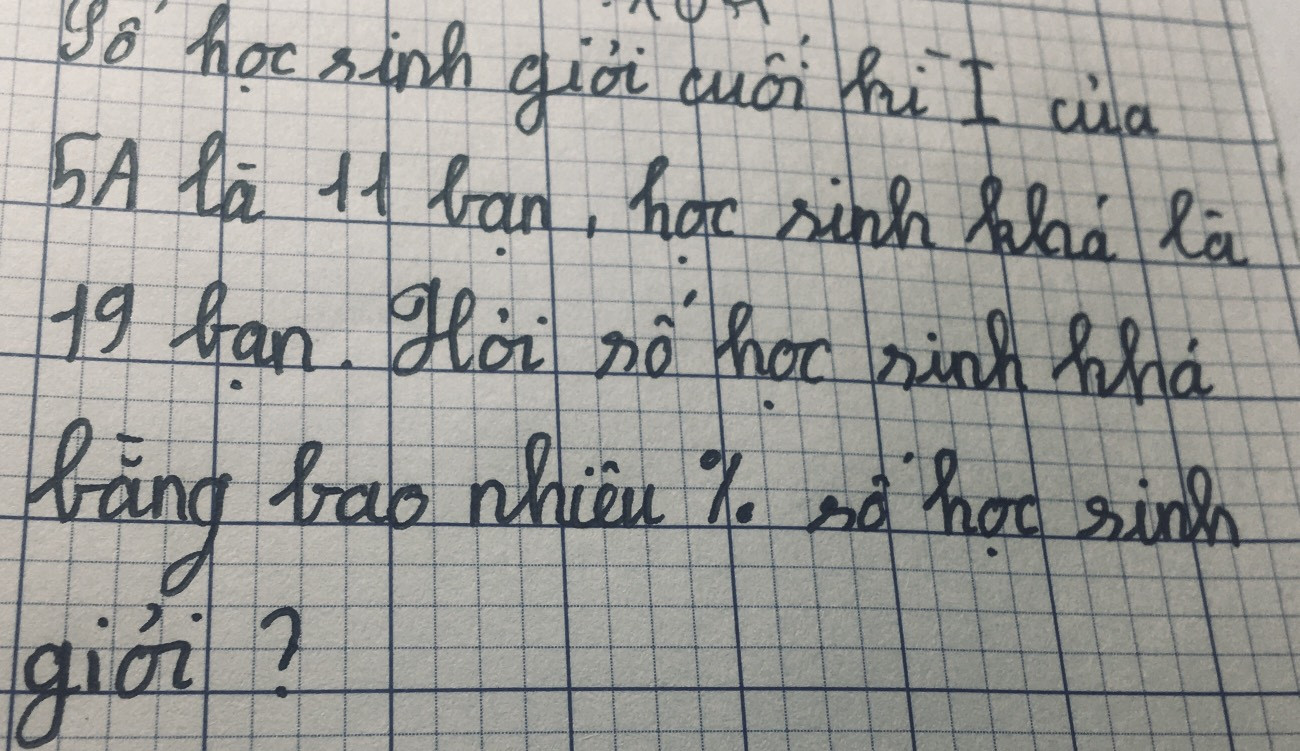 Số học sinh giỏi cuối kì I của
5A là 11 bạn, học sinh khá là
19 bạn. Hỏi số học sinh khá
bằng bao nhiêu % số học sinh
giỏi ?